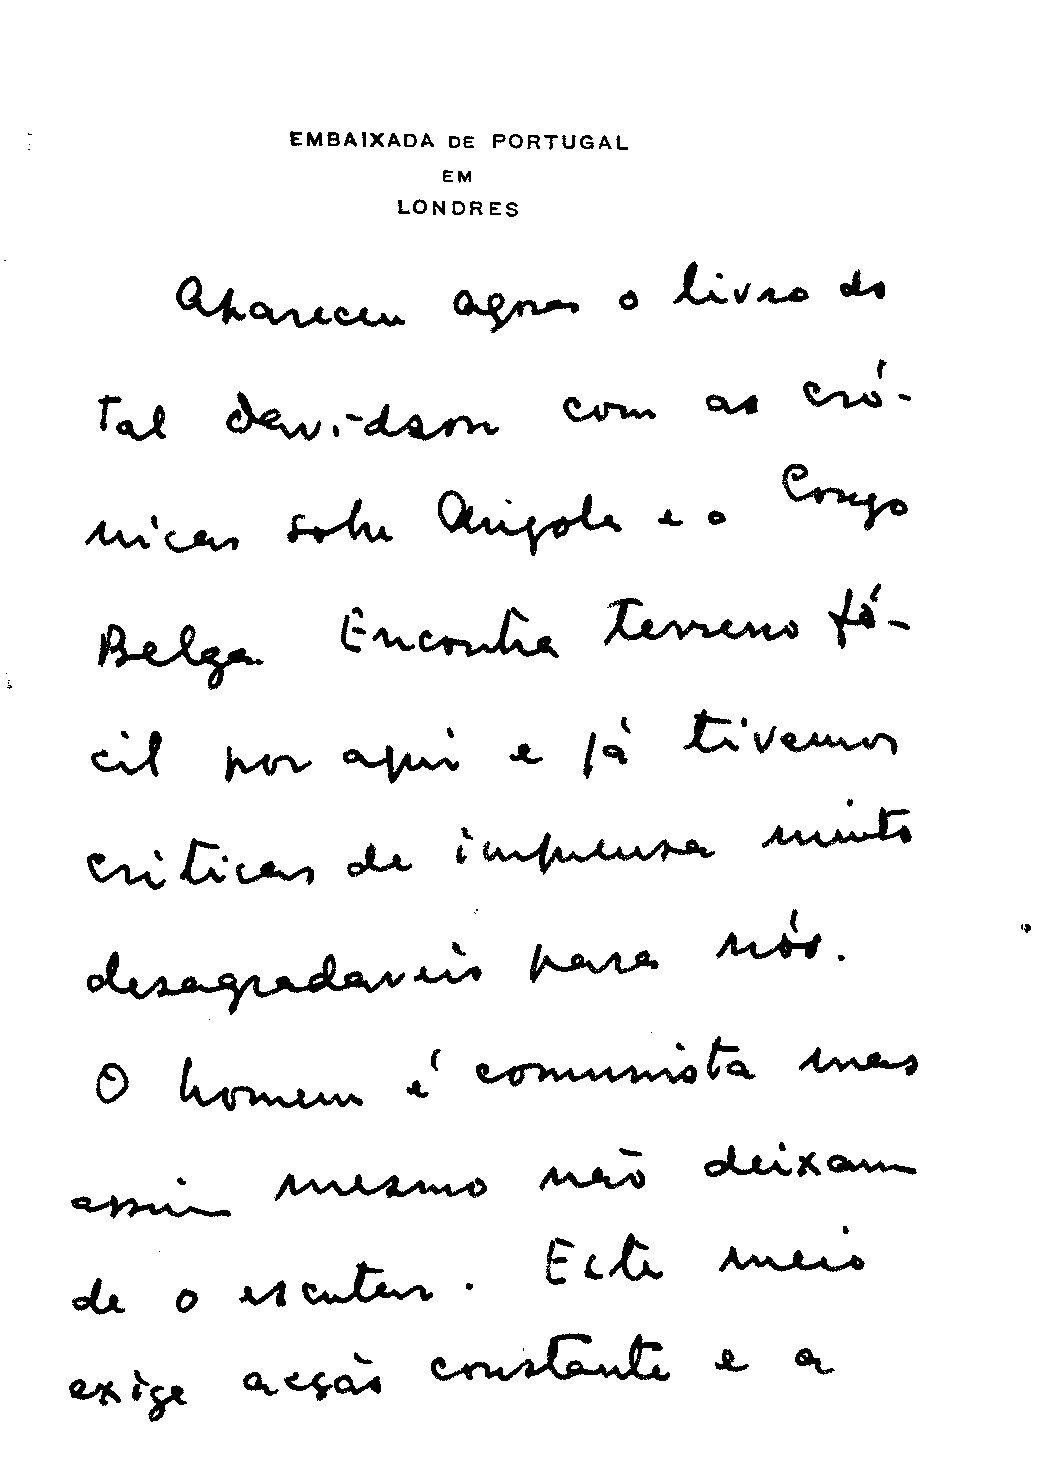 EMBAIXADA DE PORTUGAL
EM
LONDRES
Apareceu agora o livro do
tal Davidson com as cró-
nicas sobre Angola e o Congo
Belga. Encontra terreno fá-
cil por aqui e já tivemos
criticas de imprensa muito
desagradaveis para nós.
O homem é comunista mas
assim mesmo não deixam
de o escutar. Este meio
exige acção constante e a